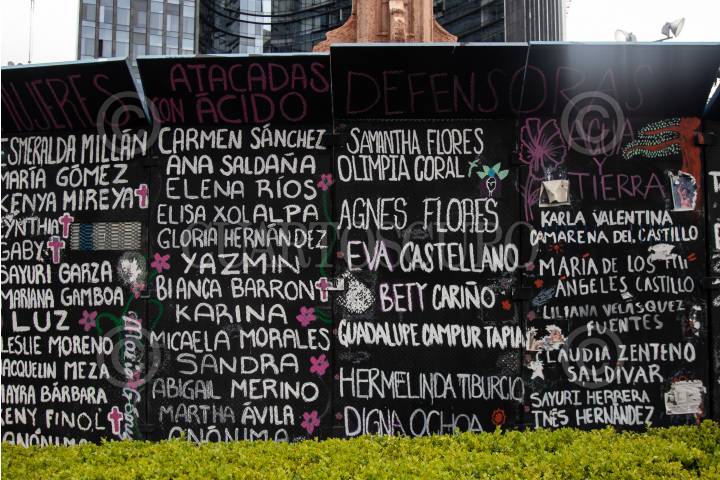 MUJERES
ESMERALDA MILLÁN
MARÍA GÓMEZ
KENYA MIREYA
CYNTHIA
GABY
SAYURI GARZA
MARIANA GAMBOA
LUZ
LESLIE MORENO
JACQUELIN MEZA
MAYRA BÁRBARA
KENY FINOL
ANÓNIMO
ATACADAS
CON ÁCIDO
CARMEN SÁNCHEZ
ANA SALDAÑA
ELENA RÍOS
ELISA XOLALPA
GLORIA HERNÁNDEZ
YAZMIN
BIANCA BARRON
KARINA
MICAELA MORALES
SANDRA
ABIGAIL MERINO
MARTHA ÁVILA
ANÓNIMA
DEFENSORAS
SAMANTHA FLORES
OLIMPIA CORAL
AGNES FLORES
EVA CASTELLANO
BETY CARIÑO
GUADALUPE CAMPUR TAPIA
HERMELINDA TIBURCIO
DIGNA OCHOA
AGUA
Y
TIERRA
KARLA VALENTINA
CAMARENA DEL CASTILLO
MARIA DE LOS
ÁNGELES CASTILLO
LILIANA VELÁSQUEZ
FUENTES
CLAUDIA ZENTENO
SALDIVAR
SAYURI HERRERA
INÉS HERNÁNDEZ
CUARTOSCURO